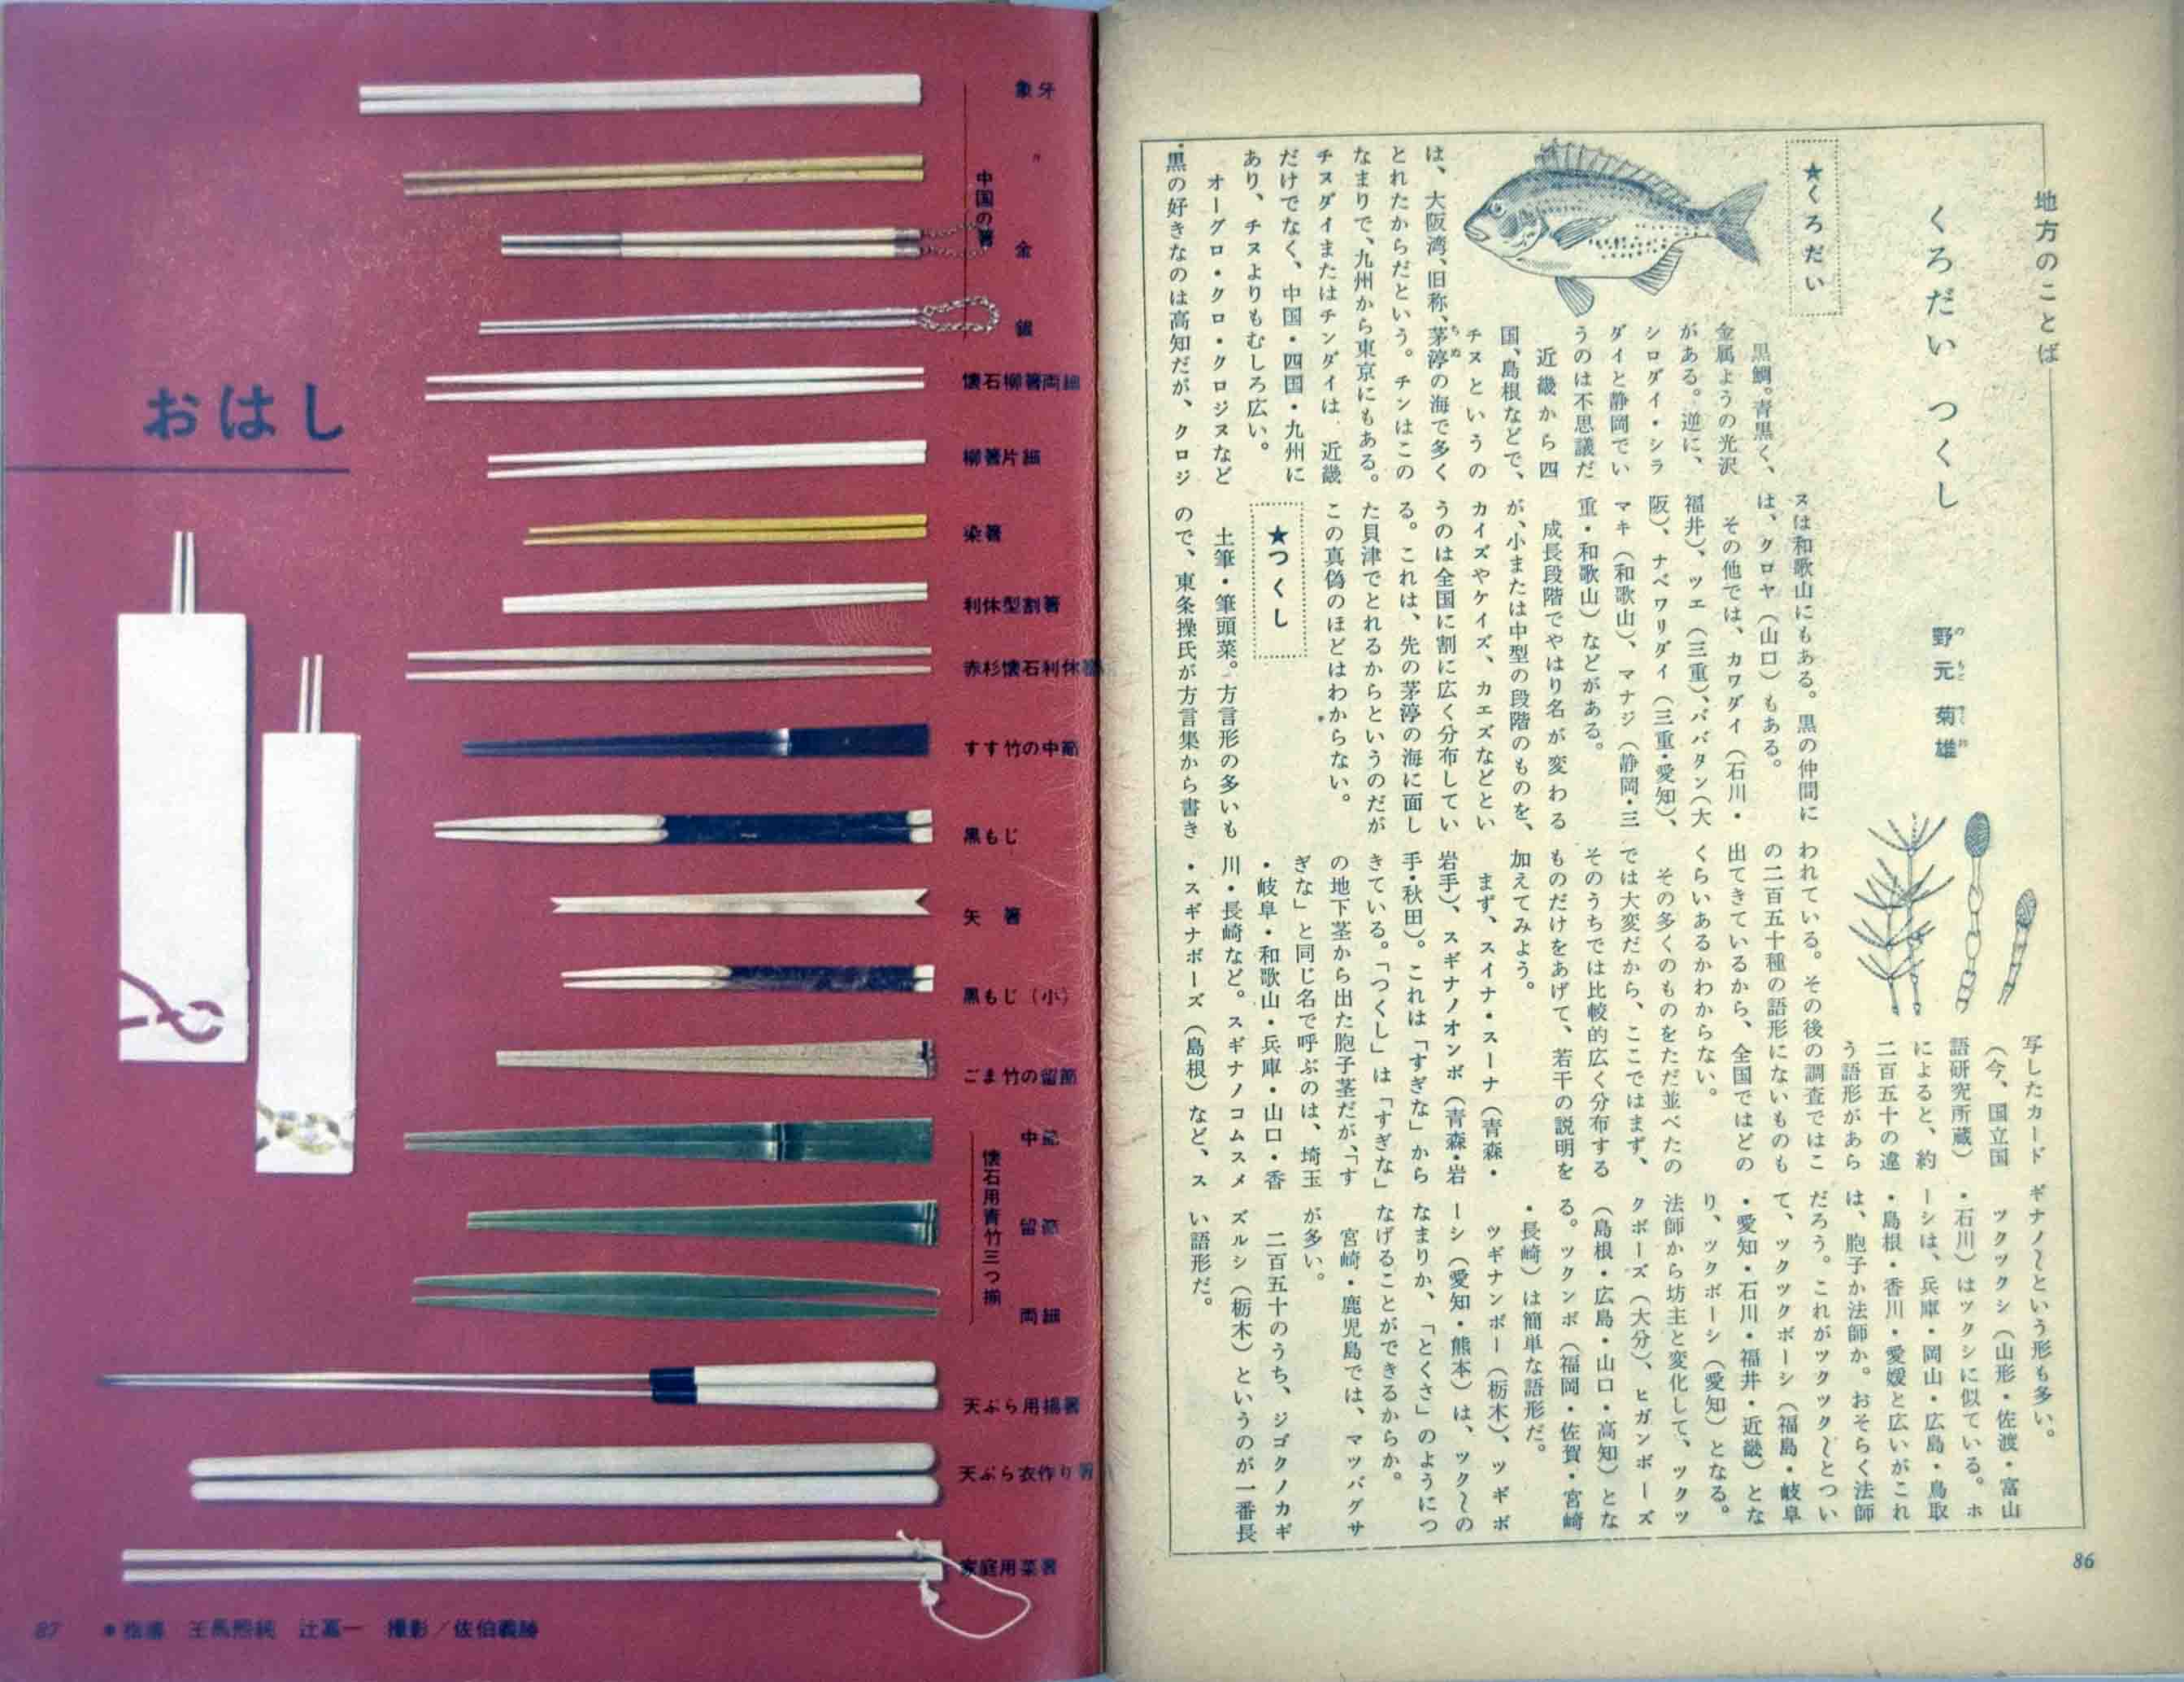 地方のことば
くろだい つくし
野元菊雄
のもときくお
★くろだい
黒鯛。青黒く、
金属ようの光沢
がある。逆に、
シロダイ・シラ
ダイと静岡でい
うのは不思議だ
近畿から四
国、島根などで、
チヌというの
は、大阪湾、旧称、茅渟の海で多く
ちぬ
とれたからだという。チンはこの
なまりで、九州から東京にもある。
チヌダイまたはチンダイは、近畿
だけでなく、中国・四国・九州に
あり、チヌよりもむしろ広い。
オーグロ・クロ・クロジヌなど
黒の好きなのは高知だが、クロジ
ヌは和歌山にもある。黒の仲間に
は、クロヤ（山口）もある。
その他では、カワダイ（石川・
福井）、ツエ（三重）、ババタン（大
阪）、ナベワリダイ（三重・愛知）、
マキ（和歌山）、マナジ（静岡・三
重・和歌山）などがある。
成長段階でやはり名が変わる
が、小または中型の段階のものを、
カイズやケイズ、カエズなどとい
うのは全国に割に広く分布してい
る。これは、先の茅渟の海に面し
た貝津でとれるからというのだが
この真偽のほどはわからない。
★つくし
土筆・筆頭菜。方言形の多いも
ので、東条操氏が方言集から書き
写したカード
（今、国立国
語研究所蔵）
によると、約
二百五十の違
う語形があら
われている。その後の調査ではこ
の二百五十種の語形にないものも
出てきているから、全国ではどの
くらいあるかわからない。
その多くのものをただ並べたの
では大変だから、ここではまず、
そのうちでは比較的広く分布する
ものだけをあげて、若干の説明を
加えてみよう。
まず、スイナ・スーナ（青森・
岩手）、スギナノオンボ（青森・岩
手・秋田）。これは「すぎな」から
きている。「つくし」は「すぎな」
の地下茎から出た胞子茎だが、「す
ぎな」と同じ名で呼ぶのは、埼玉
・岐阜・和歌山・兵庫・山口・香
川・長崎など。スギナノコムスメ
・スギナボーズ（島根）など、ス
ギナノ〜という形も多い。
ツクツクシ（山形・佐渡・富山
・石川）はツクシに似ている。ホ
ーシは、兵庫・岡山・広島・鳥取
・島根・香川・愛媛と広いがこれ
は、胞子か法師か。おそらく法師
だろう。これがツクツク〜とつい
て、ツクツクボーシ（福島・岐阜
・愛知・石川・福井・近畿）とな
り、ツクボーシ（愛知）となる。
法師から坊主と変化して、ツクツ
クボーズ（大分）、ヒガンボーズ
（島根・広島・山口・高知）とな
る。ツクンボ（福岡・佐賀・宮崎
・長崎）は簡単な語形だ。
ツギナンボー（栃木）、ツギボ
ーシ（愛知・熊本）は、ツク〜の
なまりか、「とくさ」のようにつ
なげることができるからか。
宮崎・鹿児島では、マツバグサ
が多い。
二百五十のうち、ジゴクノカギ
ズルシ（栃木）というのが一番長
い語形だ。
86
おはし
中国の箸
象牙
〃
金
銀
懐石柳箸両細
柳箸片細
染箸
利休型割箸
赤杉懐石利休箸
すす竹の中節
黒もじ
矢 箸
黒もじ（小）
ごま竹の留節
懐石用青竹三つ揃
中節
留節
両細
天ぷら用揚箸
天ぷら衣作り箸
家庭用菜箸
87
●指導 王馬熙純 辻嘉一 撮影／佐伯義勝